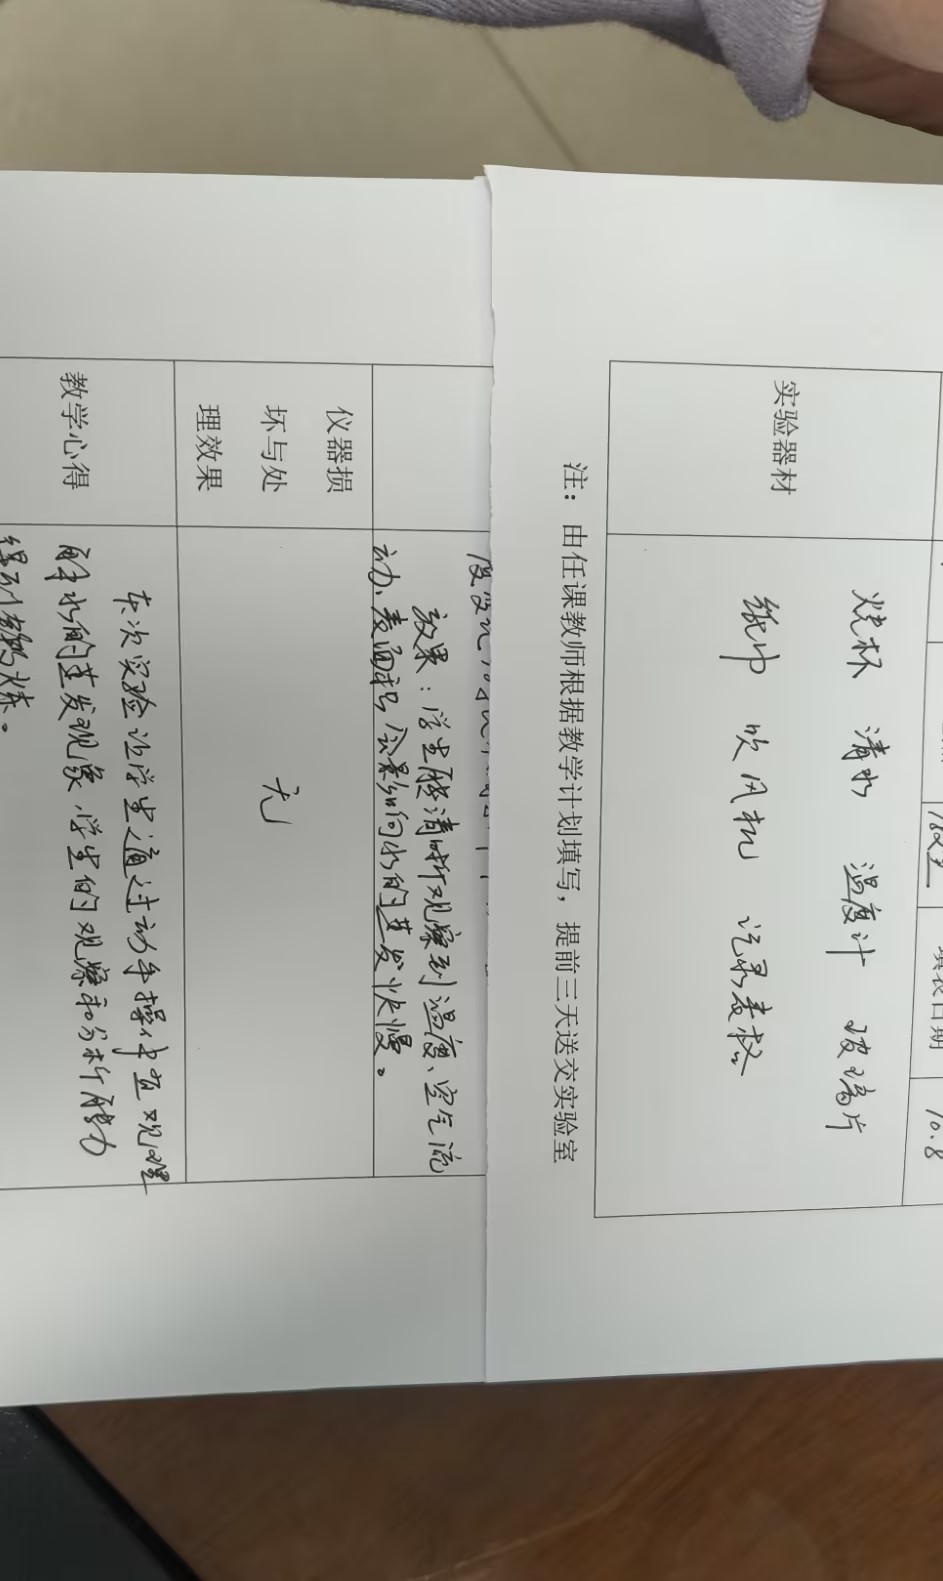 填表日期 10.8
实验器材
烧杯 清水 温度计 玻璃片
纸巾 吹风机 记录表格
注：由任课教师根据教学计划填写，提前三天送交实验室
效果：学生能清晰观察到温度、空气流
动、表面积会影响水的蒸发快慢。
仪器损
坏与处
理效果
无
教学心得
本次实验让学生通过动手操作直观理
解水的蒸发现象，学生的观察和分析能力
得到锻炼。